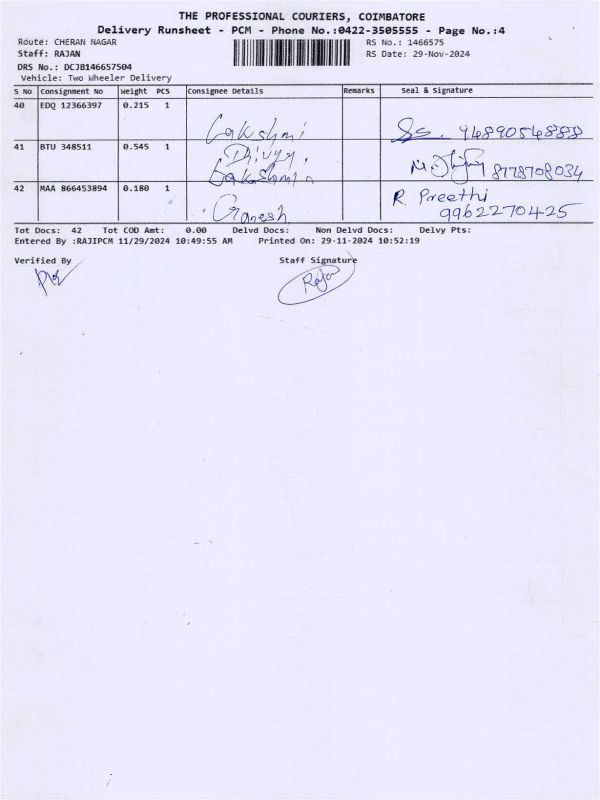 THE PROFESSIONAL COURIERS, COIMBATORE
Delivery Runsheet - PCM - Phone No.:0422-3505555 - Page No.:4
Route: CHERAN NAGAR RS No.: 1466575
Staff: RAJAN RS Date: 29-Nov-2024
DRS No.: DCJB146657504
Vehicle: Two Wheeler Delivery
S No Consignment No Weight PCS Consignee Details Remarks Seal & Signature
40 EDQ 12366397 0.215 1
Lakshmi
41 BTU 348511 0.545 1
Dhivya,
Lakshmia 8778708034
42 MAA 866453894 0.180 1 R Preethi
Ganesh 9962270425
Tot Docs: 42 Tot COD Amt: 0.00 Delvd Docs: Non Delvd Docs: Delvy Pts:
Entered By :RAJIPCM 11/29/2024 10:49:55 AM Printed On: 29-11-2024 10:52:19
Verified By Staff Signature
Rajan